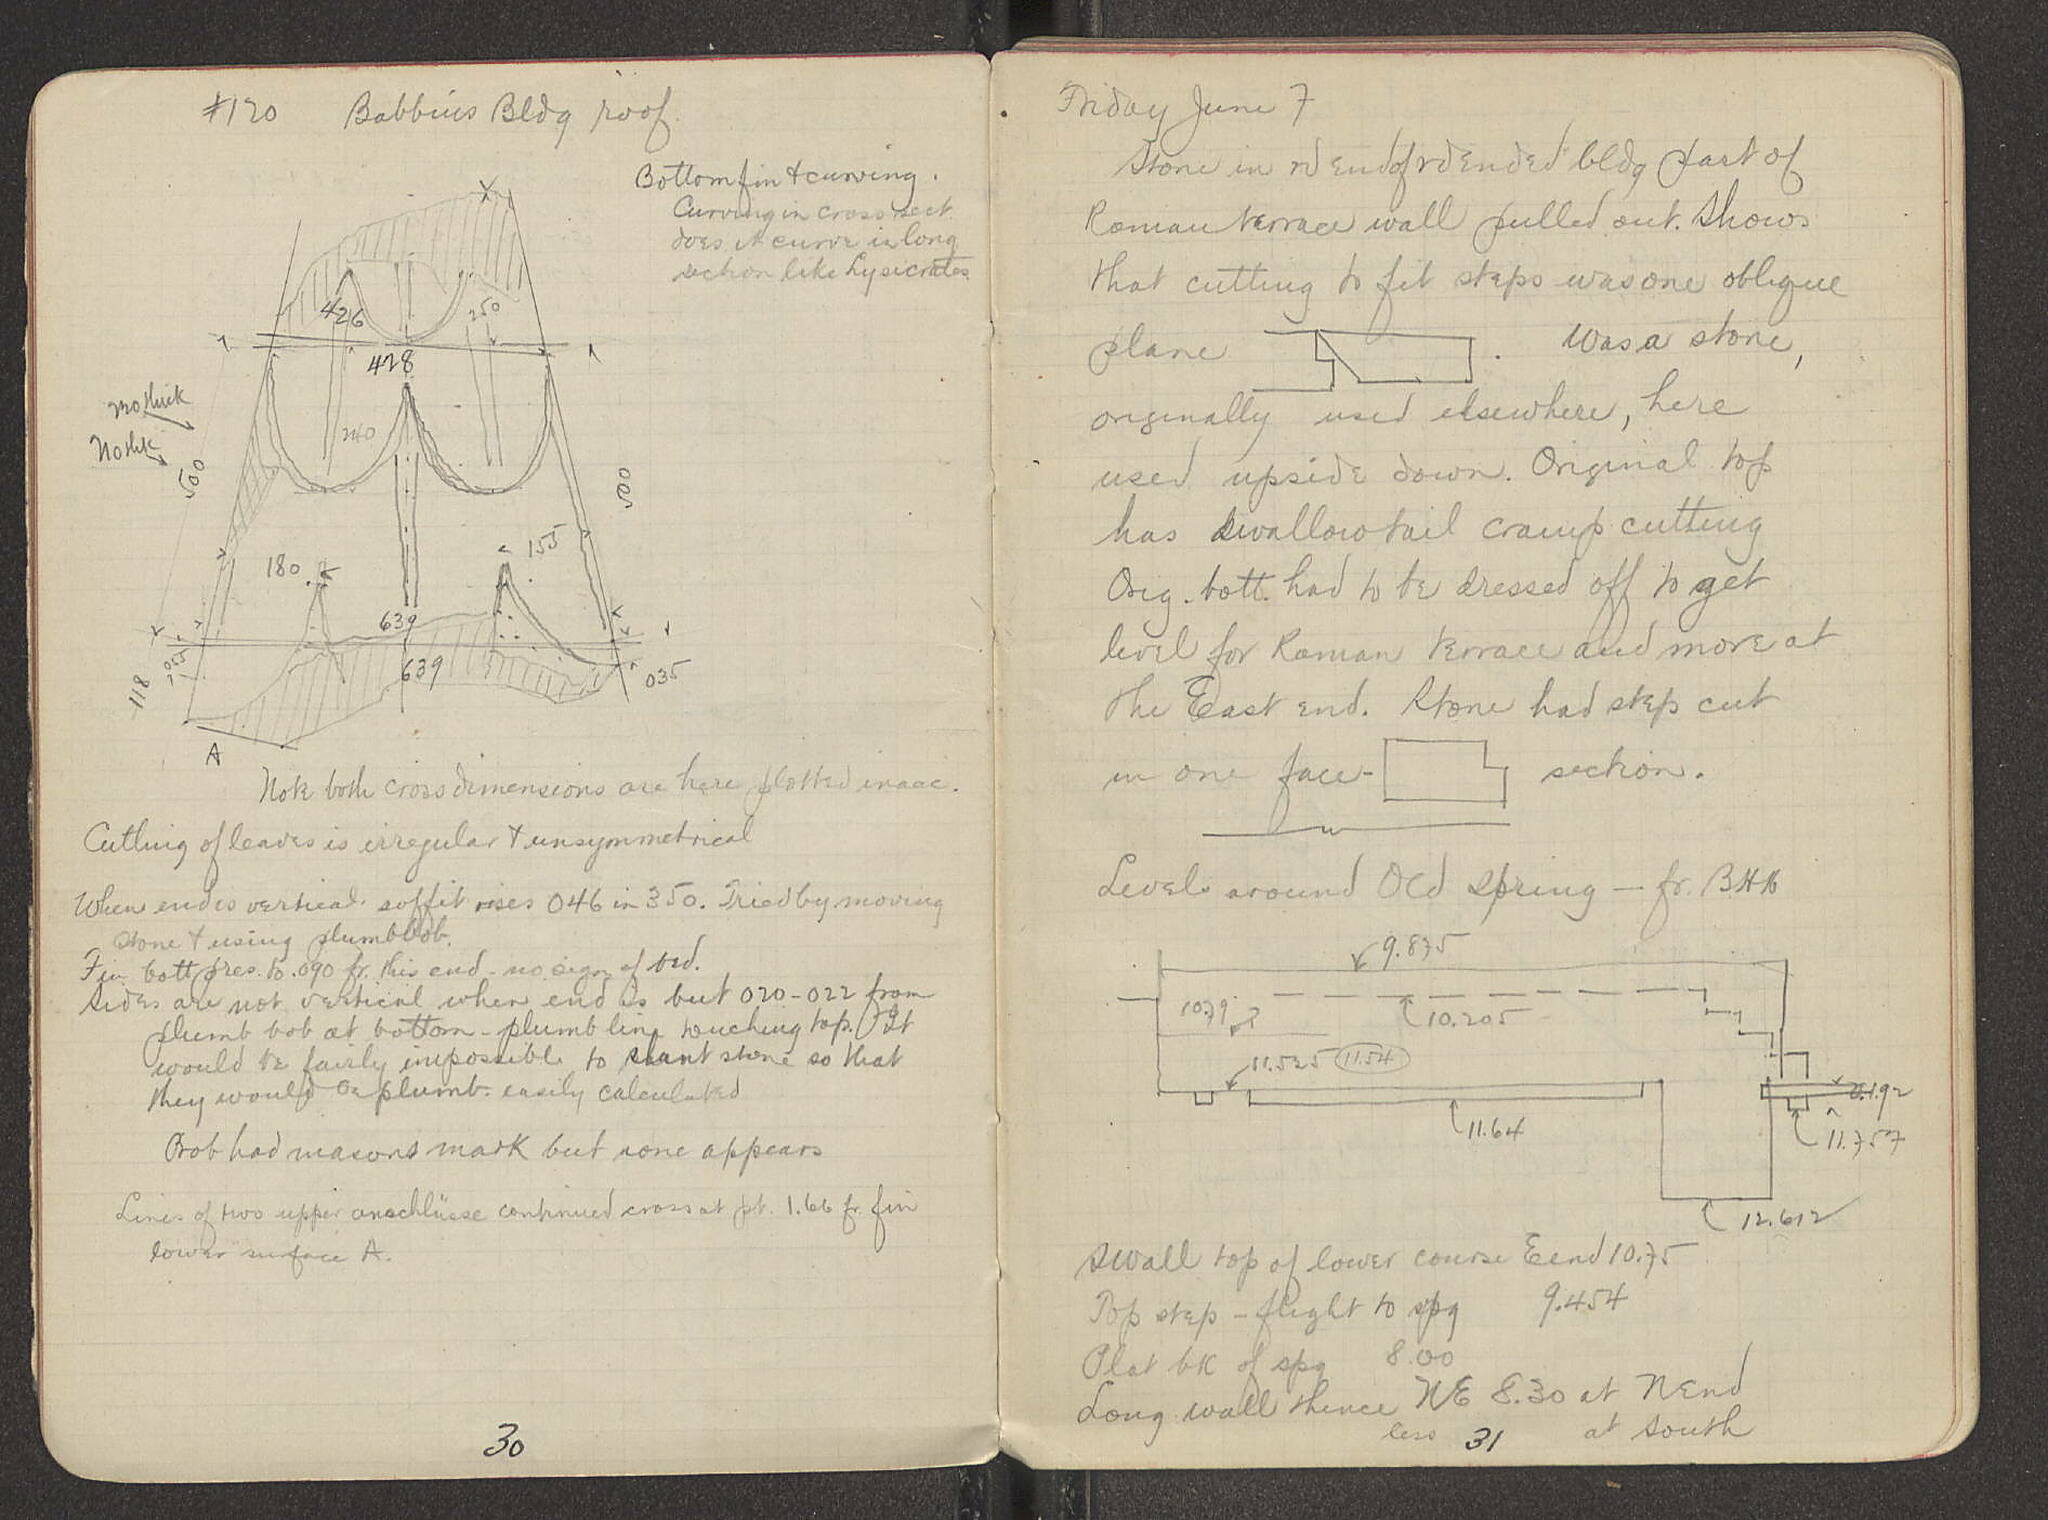 #120 Babbius Bldg roof.
Bottom fin & curving.
Curving in cross sect
does it curve in long
section like Lysicrates
X
426
250
428
240
no thick
No thk
500
500
180
155
639
639
055
118
035
A
Note both cross dimensions are here plotted inacc.
Cutting of leaves is irregular & unsymmetrical
When end is vertical soffit rises 046 in 350. Tried by moving
stone & using plumb bob.
Fin bott pres. to .090 fr. this end - no sign of bed.
Sides are not vertical when end is but 020-022 from
plumb bob at bottom - plumb line touching top. It
would be fairly impossible to slant stone so that
they would be plumb - easily calculated
Prob had masons mark but none appears
Lines of two upper anschlüsse continued cross at pt. 1.66 fr. fin
lower surface A.
30
Friday June 7
Stone in rd end of rd ended bldg part of
Roman terrace wall pulled out. Shows
that cutting to fit steps was one oblique
plane . Was a stone,
originally used elsewhere, here
used upside down. Original top
has swallowtail cramp cutting
Orig. bott. had to be dressed off to get
level for Roman terrace and more at
the East end. Stone had step cut
in one face - section.
Levels around Old Spring — fr.
9.835
10.79
10.205
11.525 11.54
11.64
0.192
11.757
12.612
S wall top of lower course E end 10.75
Top step - flight to spg 9.454
Plat bk of spg 8.00
Long wall thence NE 8.30 at N End
less at South
31